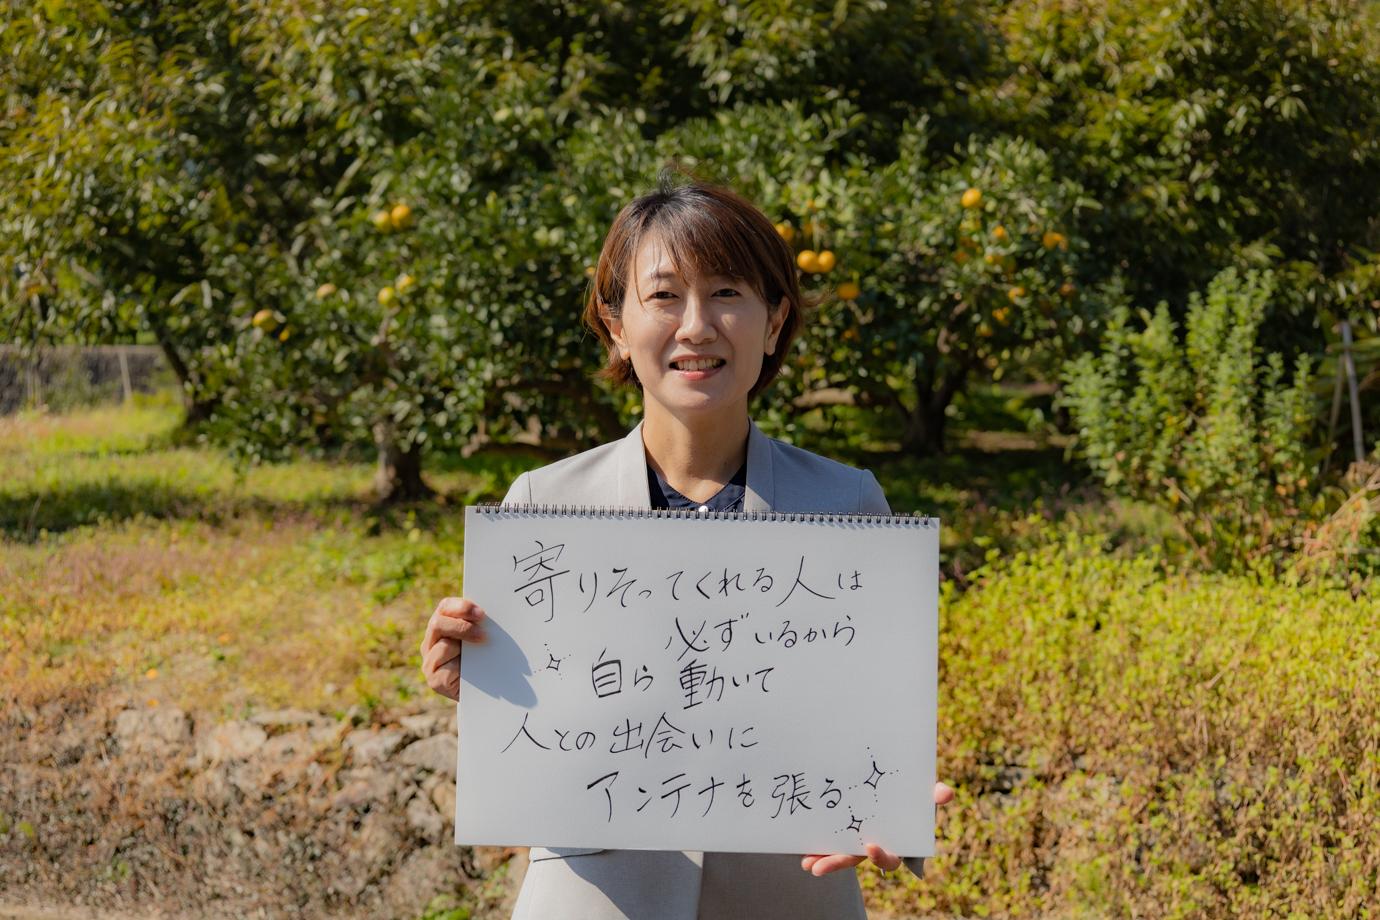 寄りそってくれる人は
必ずいるから
自ら動いて
人との出会いに
アンテナを張る